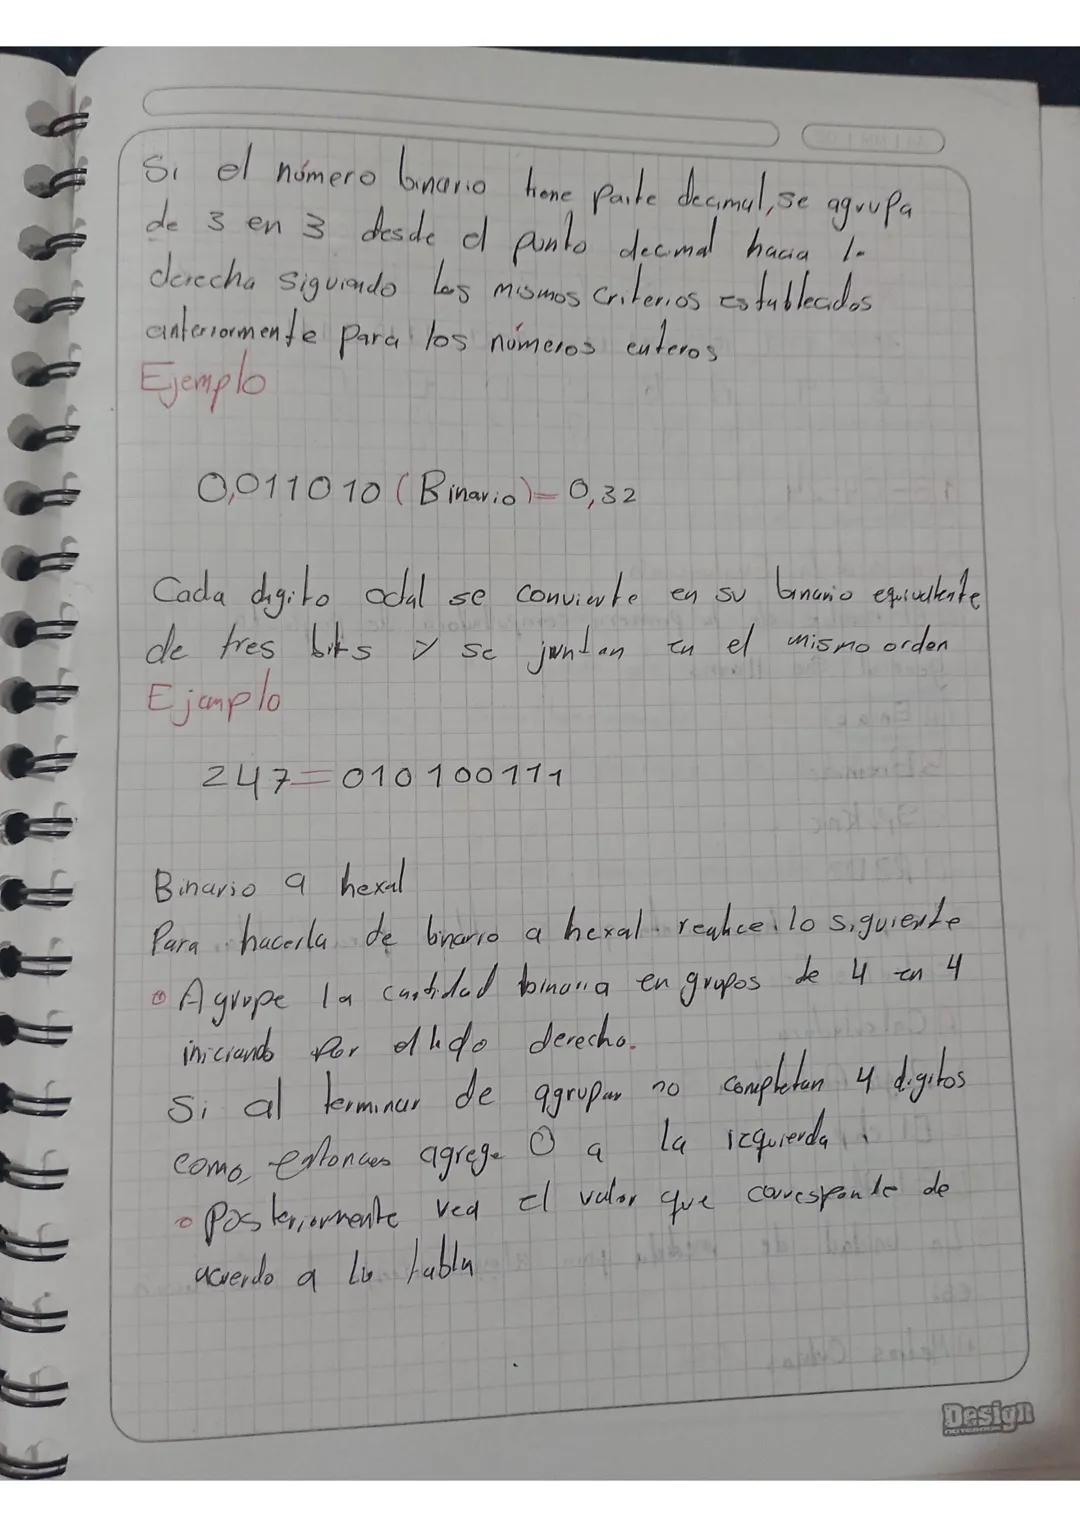 Si el número binario tiene parte decimal, se agrupa
de 3 en 3 desde el punto decimal hacia la
derecha siguiendo los mismos criterios establecidos
anteriormente para los números enteros
Ejemplo
0,011010 (Binario) = 0,32
Cada digito octal se convierte en su binario equivalente
de tres bits y se juntan en el mismo orden
Ejemplo
247=010100111
Binario a hexal
Para hacerla de binario a hexal realice lo siguiente
Agrupe la cantidad binaria en grupos de 4 en 4
iniciando por el lado derecho.
Si al terminar de agrupar no completan 4 digitos
como, entonces agrege 0 a la izquierda
Posteriormente vea el valor que corresponde de
acuerdo a la tabla
Design